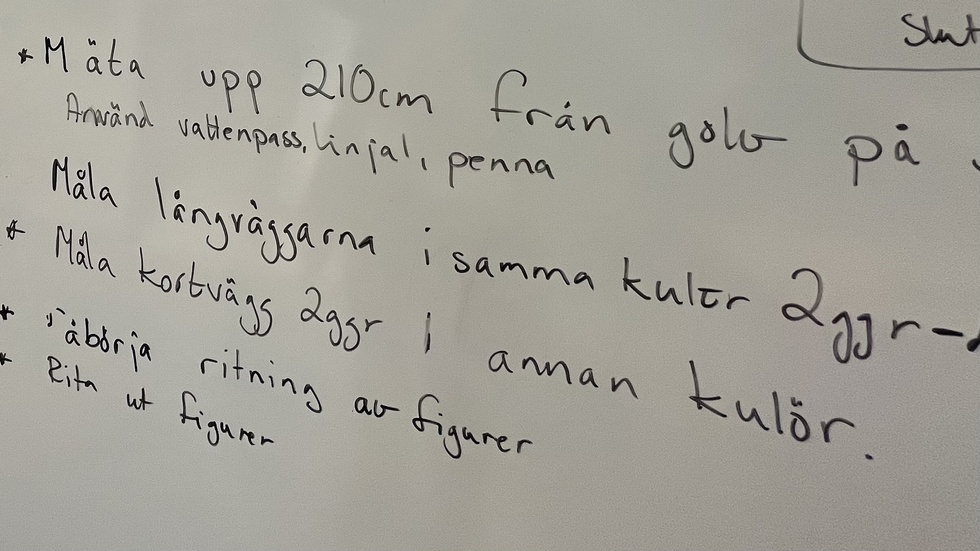 Slut
* Mäta upp 210cm från golv på
Använd vattenpass, linjal, penna
Måla långväggarna i samma kulör 2ggr -
* Måla kortvägg 2ggr i annan kulör.
* Påbörja ritning av figurer
* Rita ut figurer